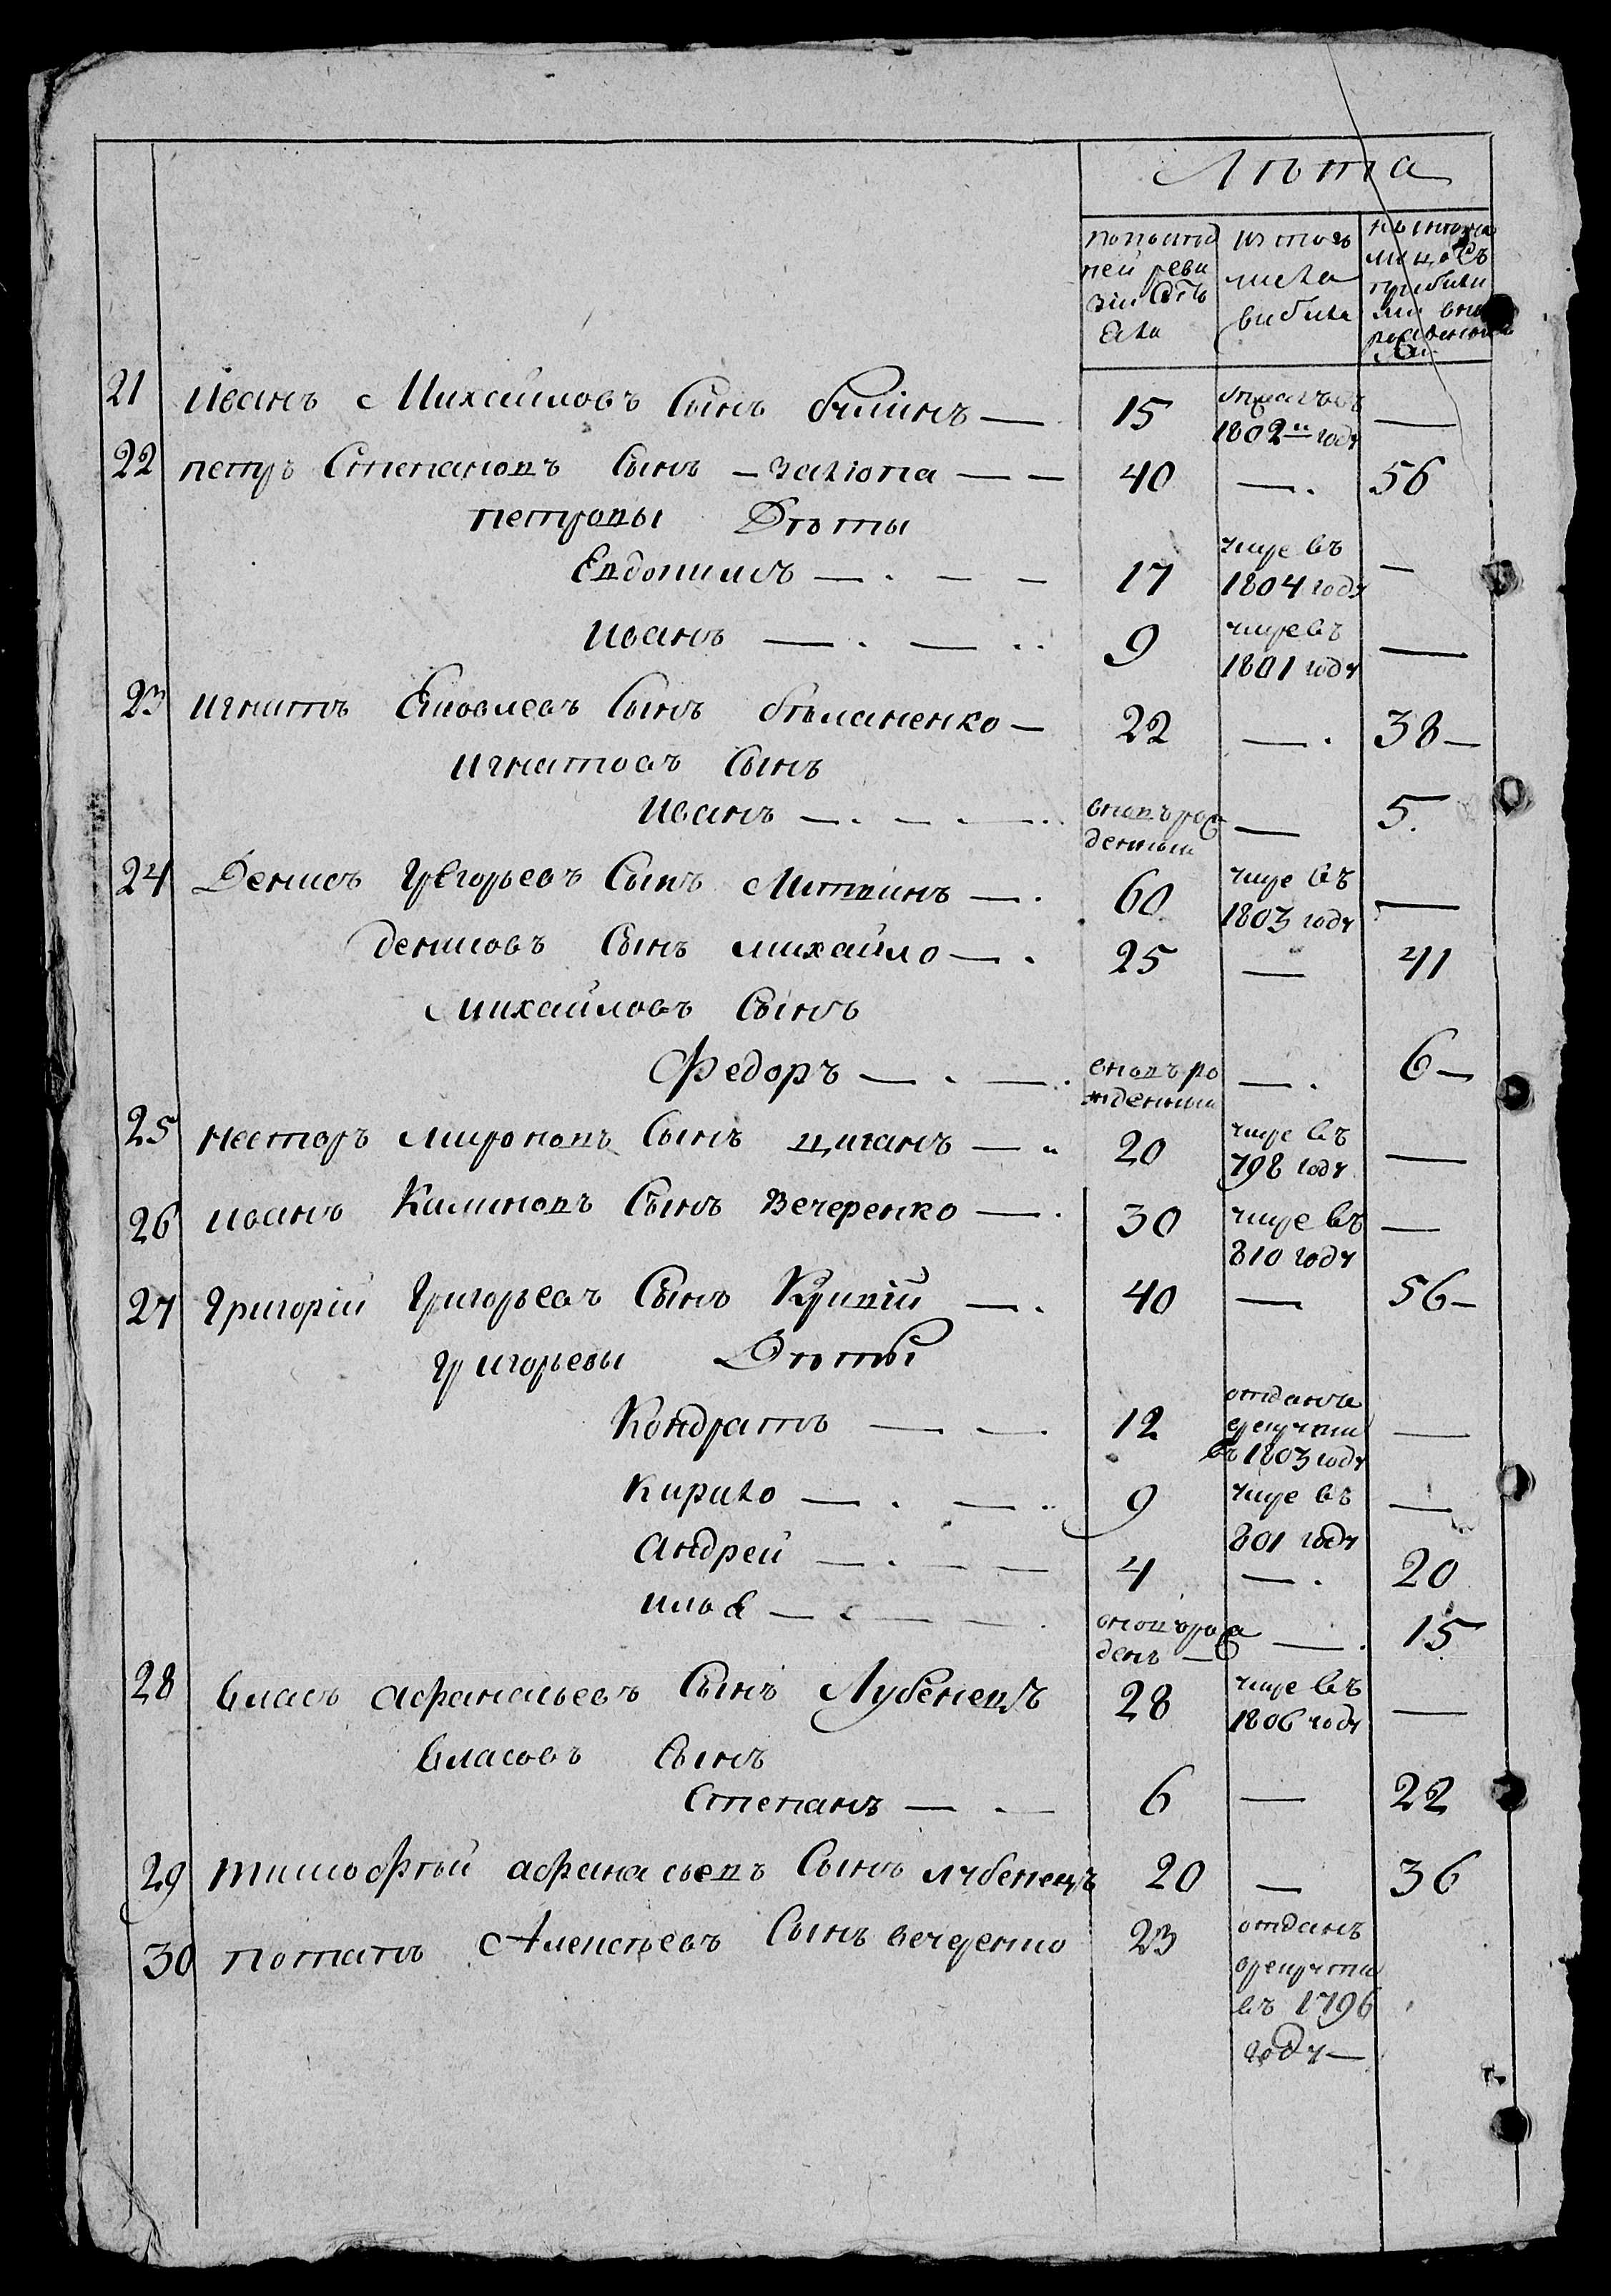 Лѣта
попослѣд
ней реви
зіи было
изтого
числа
выбыло
ныне на
лицо съ
прибылы
ми внов
рожденны
ми
21 Иванъ Михайловъ Сынъ — 15 1802го году —
22 петръ Степановъ Сынъ — — — 40 — 56
петровы Дѣты
Евдокимъ — — — 17 умре въ 1804 году —
Иванъ — — 9 умре въ 1801 году —
23 игнатъ Яковлевъ Сынъ бѣланенко — 22 — 38 —
игнатовъ Сынъ
Иванъ — — — вновърож денный — 5.
24 Денисъ Григорьевъ Сынъ Литвинъ — 60 умре въ 1803 году —
денисовъ Сынъ михайло — 25 — 41
Михайловъ Сынъ
Федоръ — — вновъро жденный — 6 —
25 несторъ мироновъ Сынъ циганъ — 20 умре въ 798 году —
26 иванъ Калиновъ Сынъ Вечеренко — 30 умре въ 810 году —
27 Григорій Григорьевъ Сынъ Кривій — 40 — 56 —
григорьевы Дѣты
Кондратъ — — 12 отданъ в рекруты въ 1803 году —
Кирило — — 9 умре въ 801 году —
Андрей — — — 4 — 20
илья — — — вновърож денъ — — 15
28 власъ афанасьевъ Сынъ Лубенецъ 28 умре въ 1806 году —
власовъ Сынъ
Степанъ — — 6 — 22
29 тимофѣй афанасьевъ Сынъ лубенецъ 20 — 36
30 потапъ Алексѣевъ Сынъ вечеренко 23 отданъ врекруты въ 1796 году —